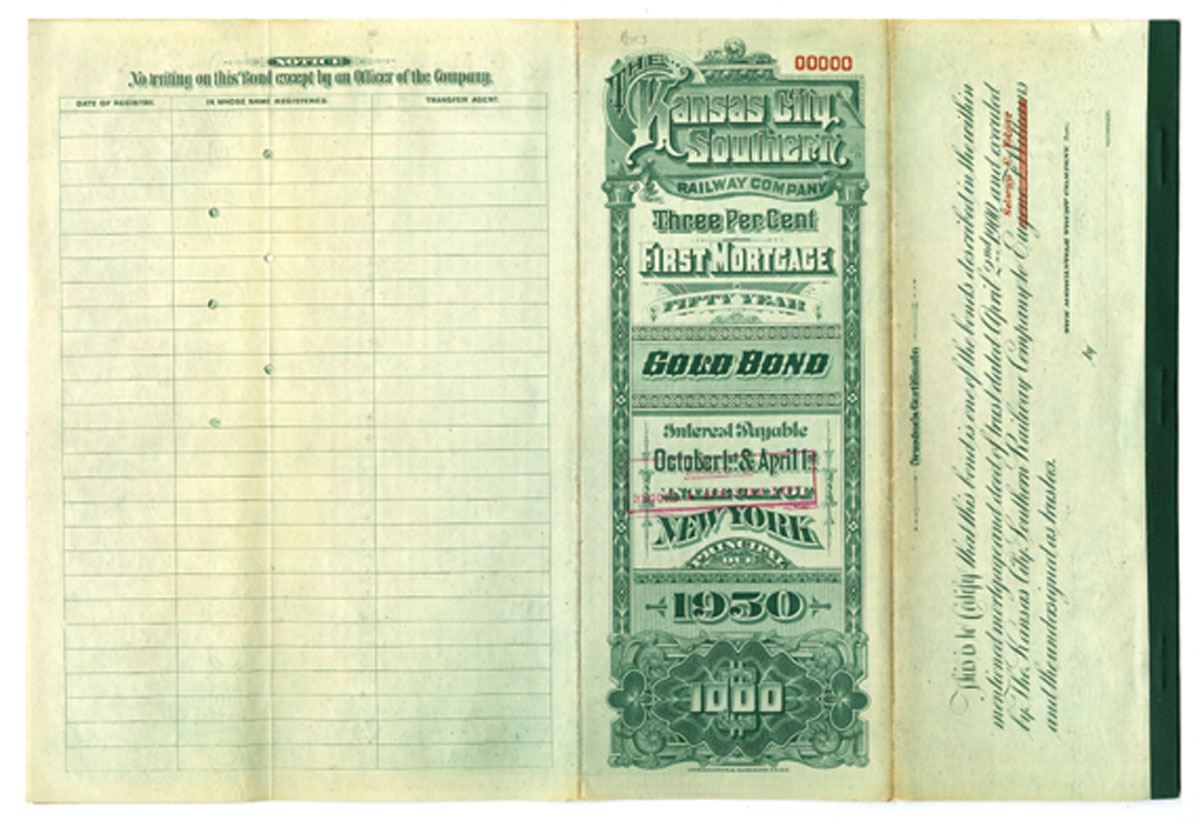 NOTICE
No writing on this Bond except by an Officer of the Company.
DATE OF REGISTRY.
IN WHOSE NAME REGISTERED.
TRANSFER AGENT.
00000
THE
Kansas City
Southern
RAILWAY COMPANY
Three Per Cent
FIRST MORTGAGE
FIFTY YEAR
GOLD BOND
Interest Payable
October 1st & April 1st
NEW YORK
PRINCIPAL
DUE
1950
1000
Trustee's Certificate
This is to Certify that this bond is one of the bonds described in the within
mentioned mortgage and deed of trust dated April 2nd 1900 and executed
by The Kansas City Southern Railway Company to
and the undersigned as trustees.
THE MERCANTILE TRUST COMPANY
by